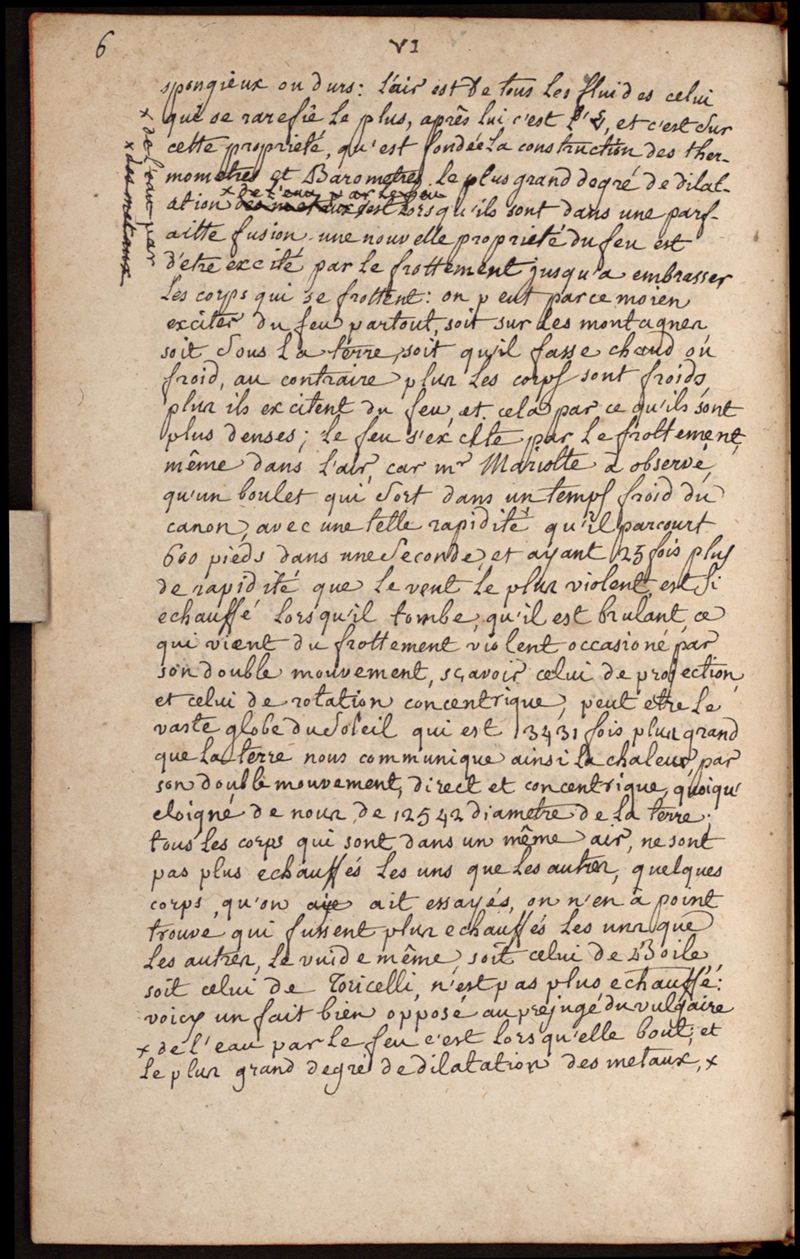 6
VI
spongieux ou durs: l'air est de tous les fluides celui
qui se rarefie le plus, après lui c'est l' et c'est sur
cette proprieté, qu'est fondée la construction des ther-
mometres et Barometres. le plus grand degré de dilat-
x de l'eau par le feu
ation des metaux est lorsqu'ils sont dans une parf-
aitte fusion. une nouvelle proprieté du feu est
d'etre excité par le frottement jusqu'a embrasser
les corps qui se frottent: on peut par ce moïen
exciter du feu partout, soit sur les montagnes
soit sous la terre, soit qu'il fasse chaud ou
froid, au contraire plus les corps sont froids,
plus ils excitent du feu, et cela par ce qu'ils sont
plus denses; le feu s'excite par le frottement,
même dans l'air, car mr Mariotte à observé,
qu'un boulet qui sort dans un temps froid du
canon, avec une telle rapidité qu'il parcourt
600 pieds dans une seconde, et ayant 25 fois plus
de rapidité que le vent le plus violent, est si
echauffé lorsqu'il tombe, qu'il est brulant, ce
qui vient du frottement violent occasioné par
son double mouvement, sçavoir celui de projection,
et celui de rotation concentrique, peut etre le
vaste globe du soleil qui est 13431 fois plus grand
que la terre nous communique ainsi la chaleur, par
son double mouvement, direct et concentrique, quoiqu'
eloigné de nous de 12542 diametre de la terre;
tous les corps qui sont dans un même air, ne sont
pas plus echauffés les uns que les autres, quelques
corps, qu'on aye ait essayés, on n'en à point
trouvé qui fussent plus echauffés les uns que
les autres, le vuide même, soit celui de Boile,
soit celui de Toricelli, n'est pas plus echauffé:
voicy un fait bien opposé au prejugé du vulgaire
x de l'eau par le feu c'est lorsqu'elle bout, et
le plus grand degré de dilatation des metaux, x
x de l'eau par
x des metaux